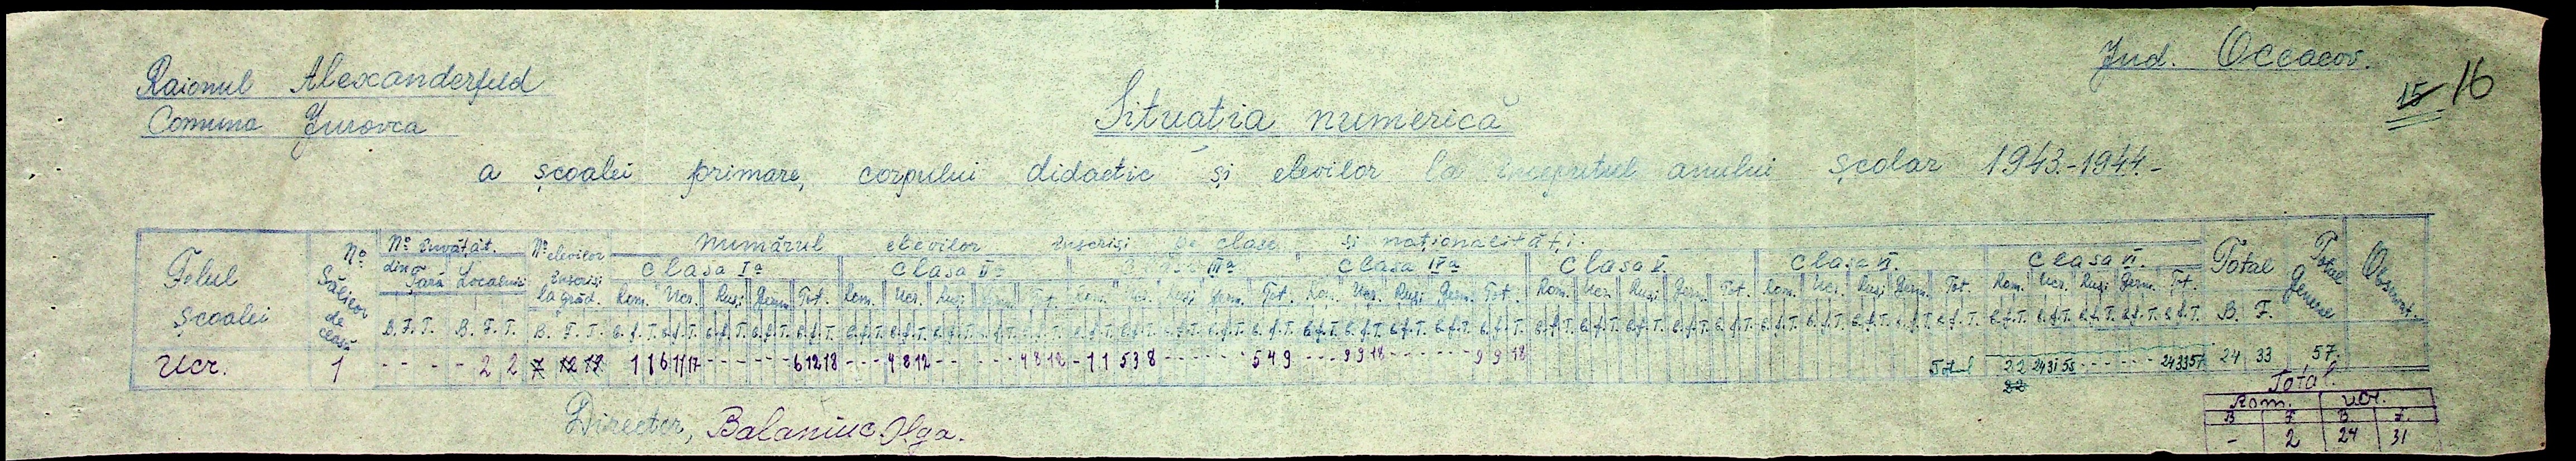 Raionul Alexanderfeld
Comuna Jurovca
Jud. Occacov.
15 16
Situația numerică
a școalei primare, corpului didactic și elevilor la începutul anului școlar 1943-1944.-
Felul școalei Nº Sălilor de clasă Nº învățăt. din Țară Localnici Nº elevilor înscriși la grăd. Numărul elevilor înscriși pe clase și naționalități. Total Total general Observat.
Clasa Iª Clasa IIª Clasa IIIª Clasa IVª Clasa V. Clasa VI. Clasa VI.
Rom. Ucr. Ruși Germ. Tot. Rom. Ucr. Ruși Germ. Tot. Rom. Ucr. Ruși Germ. Tot. Rom. Ucr. Ruși Germ. Tot. Rom. Ucr. Ruși Germ. Tot. Rom. Ucr. Ruși Germ. Tot. Rom. Ucr. Ruși Germ. Tot.
B. F. T. B. F. T. B. F. T. B. F.
Ucr. 1 - - - - 2 2 7 12 19 1 1 6 11 17 - - - - - - 6 12 18 - - - 4 8 12 - - - - - - 4 8 12 - 1 1 5 3 8 - - - - - - 5 4 9 - - - 9 9 18 - - - - - - 9 9 18 Total 2 2 24 31 55 - - - - - - 24 33 57 24 33 57.
22
Director, Balaniuc Olga.
Total.
Rom. Ucr.
B F B. F.
- 2 24 31